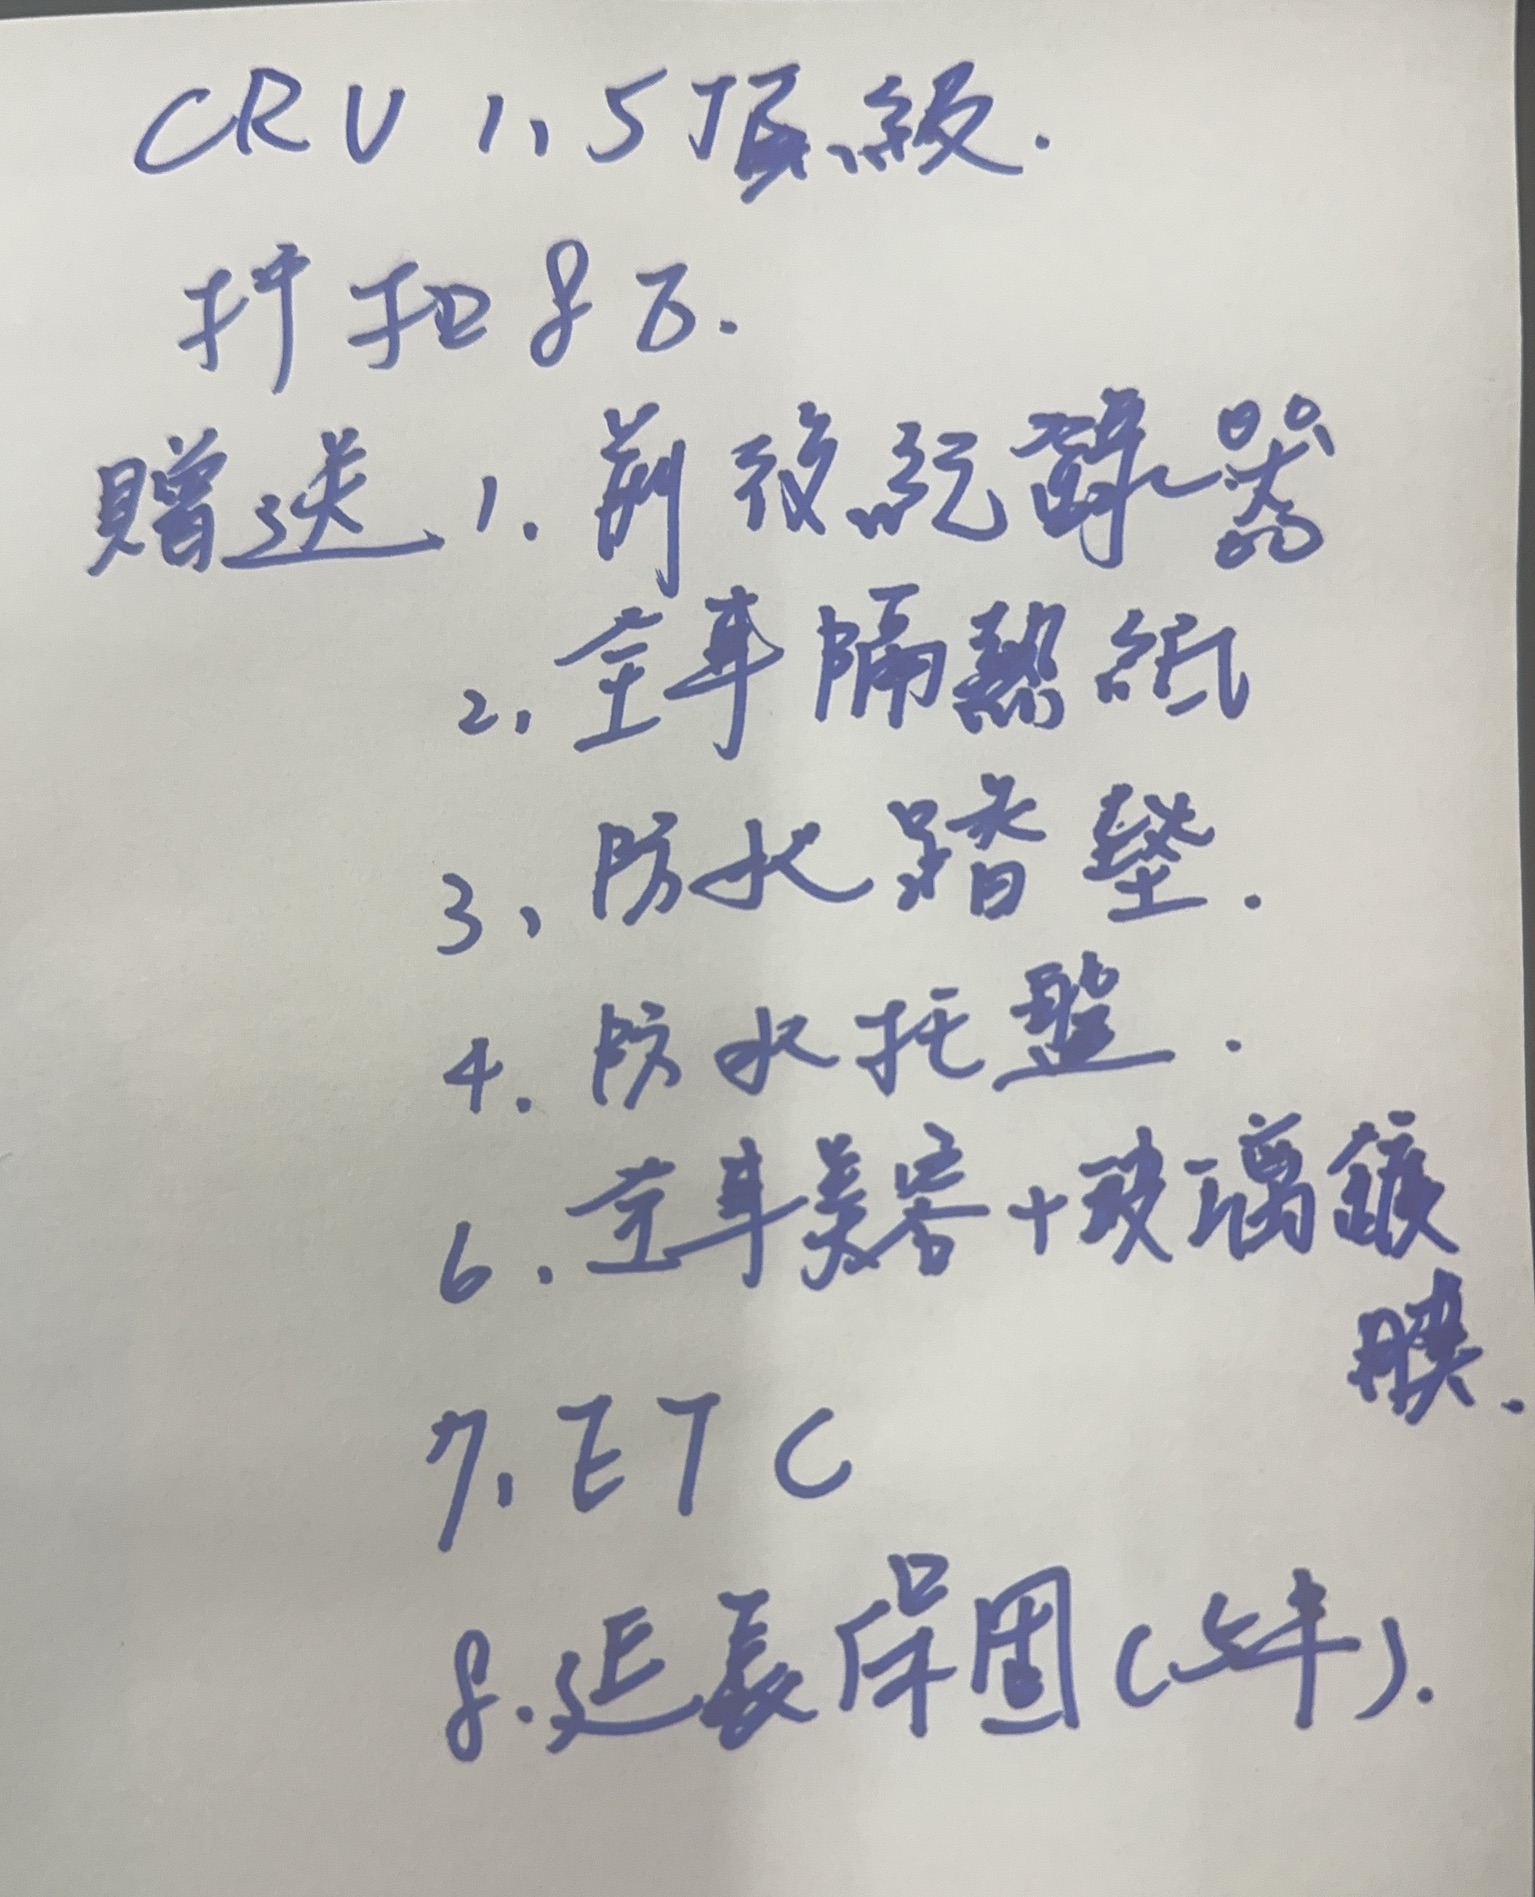 CRV 1.5頂級.
折扣8万.
贈送 1. 前後紀錄器
2. 全車隔熱紙
3、防水踏墊.
4. 防水托盤.
6. 全車美容+玻璃鍍
膜.
7. ETC
8. 延長保固(年).